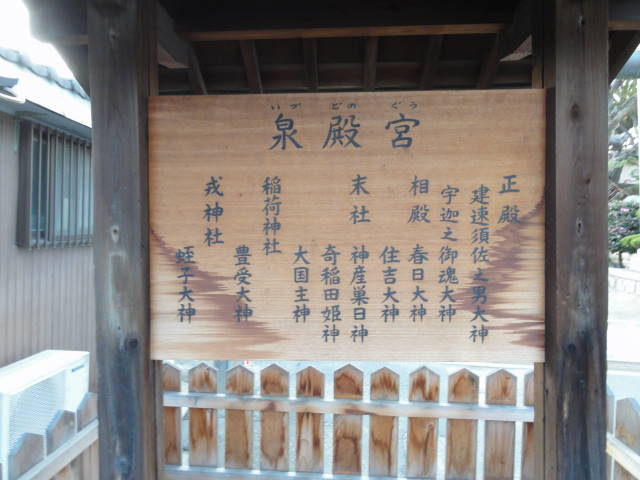 いづ どの ぐう
泉殿宮
正殿
建速須佐之男大神
宇迦之御魂大神
相殿
春日大神
住吉大神
末社
神産巣日神
奇稲田姫神
大国主神
稲荷神社
豊受大神
戎神社
蛭子大神